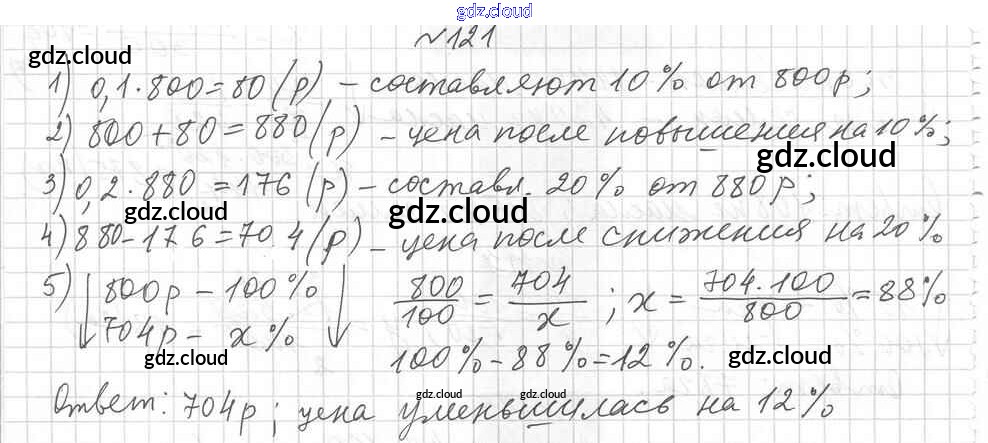 gdz.cloud
№121
gdz.cloud
1) 0,1·800=80(р) – составляют 10% от 800р;
2) 800+80=880(р) – цена после повышения на 10%;
gdz.cloud
3) 0,2·880=176(р) – составл. 20% от 880р;
gdz.cloud gdz.cloud
4) 880–176=704(р) – цена после снижения на 20%
5) ↓800р – 100%↓ 800/100 = 704/x ; x = 704·100/800 = 88%
704р – x%
100% – 88% = 12%.
gdz.cloud gdz.cloud
gdz.cloud gdz.cloud
Ответ: 704р; цена уменьшилась на 12%